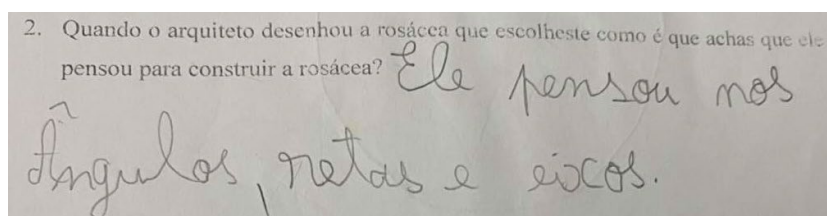 2. Quando o arquiteto desenhou a rosácea que escolheste como é que achas que ele
pensou para construir a rosácea? Ele pensou nos
Ângulos, retas e eixos.